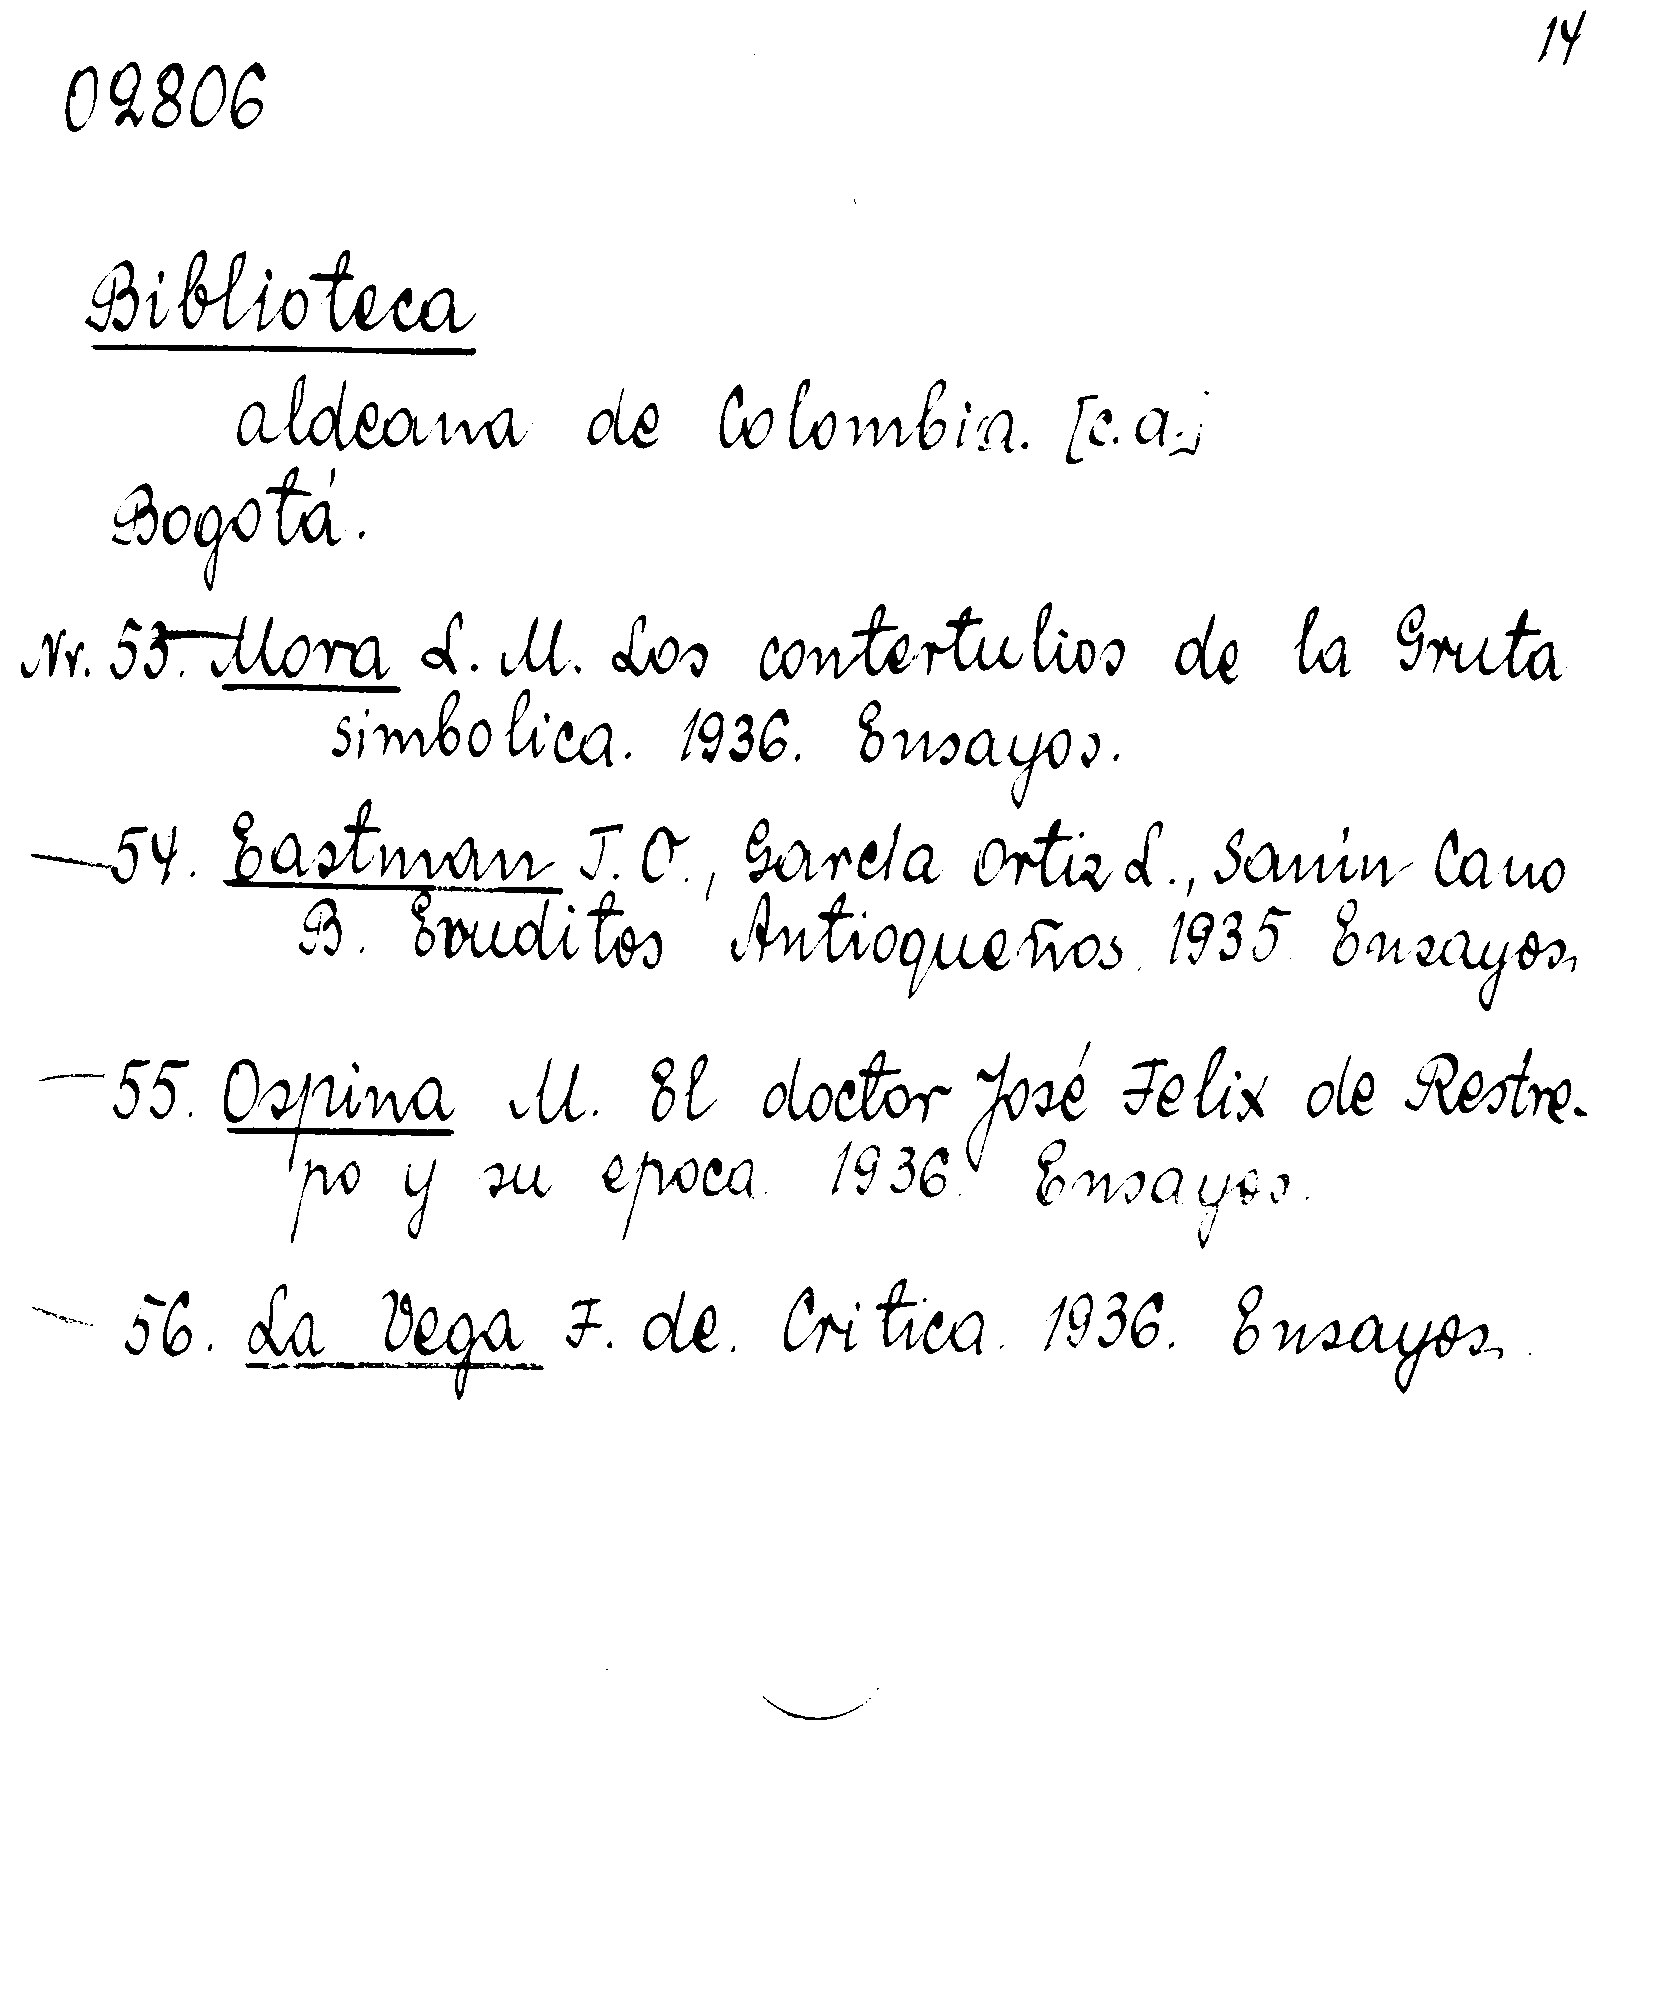 14
02806
Biblioteca
aldeana de Colombia. [c.a.]
Bogotá.
Nr. 53. Mora L. M. Los contertulios de la Gruta
simbolica. 1936. Ensayos.
— 54. Eastman J. O., Garcia Ortiz L., Sanin Cano
B. Eruditos Antioqueños. 1935. Ensayos.
— 55. Ospina M. El doctor José Felix de Restre-
po y su epoca. 1936. Ensayos.
— 56. La Vega F. de. Critica. 1936. Ensayos.